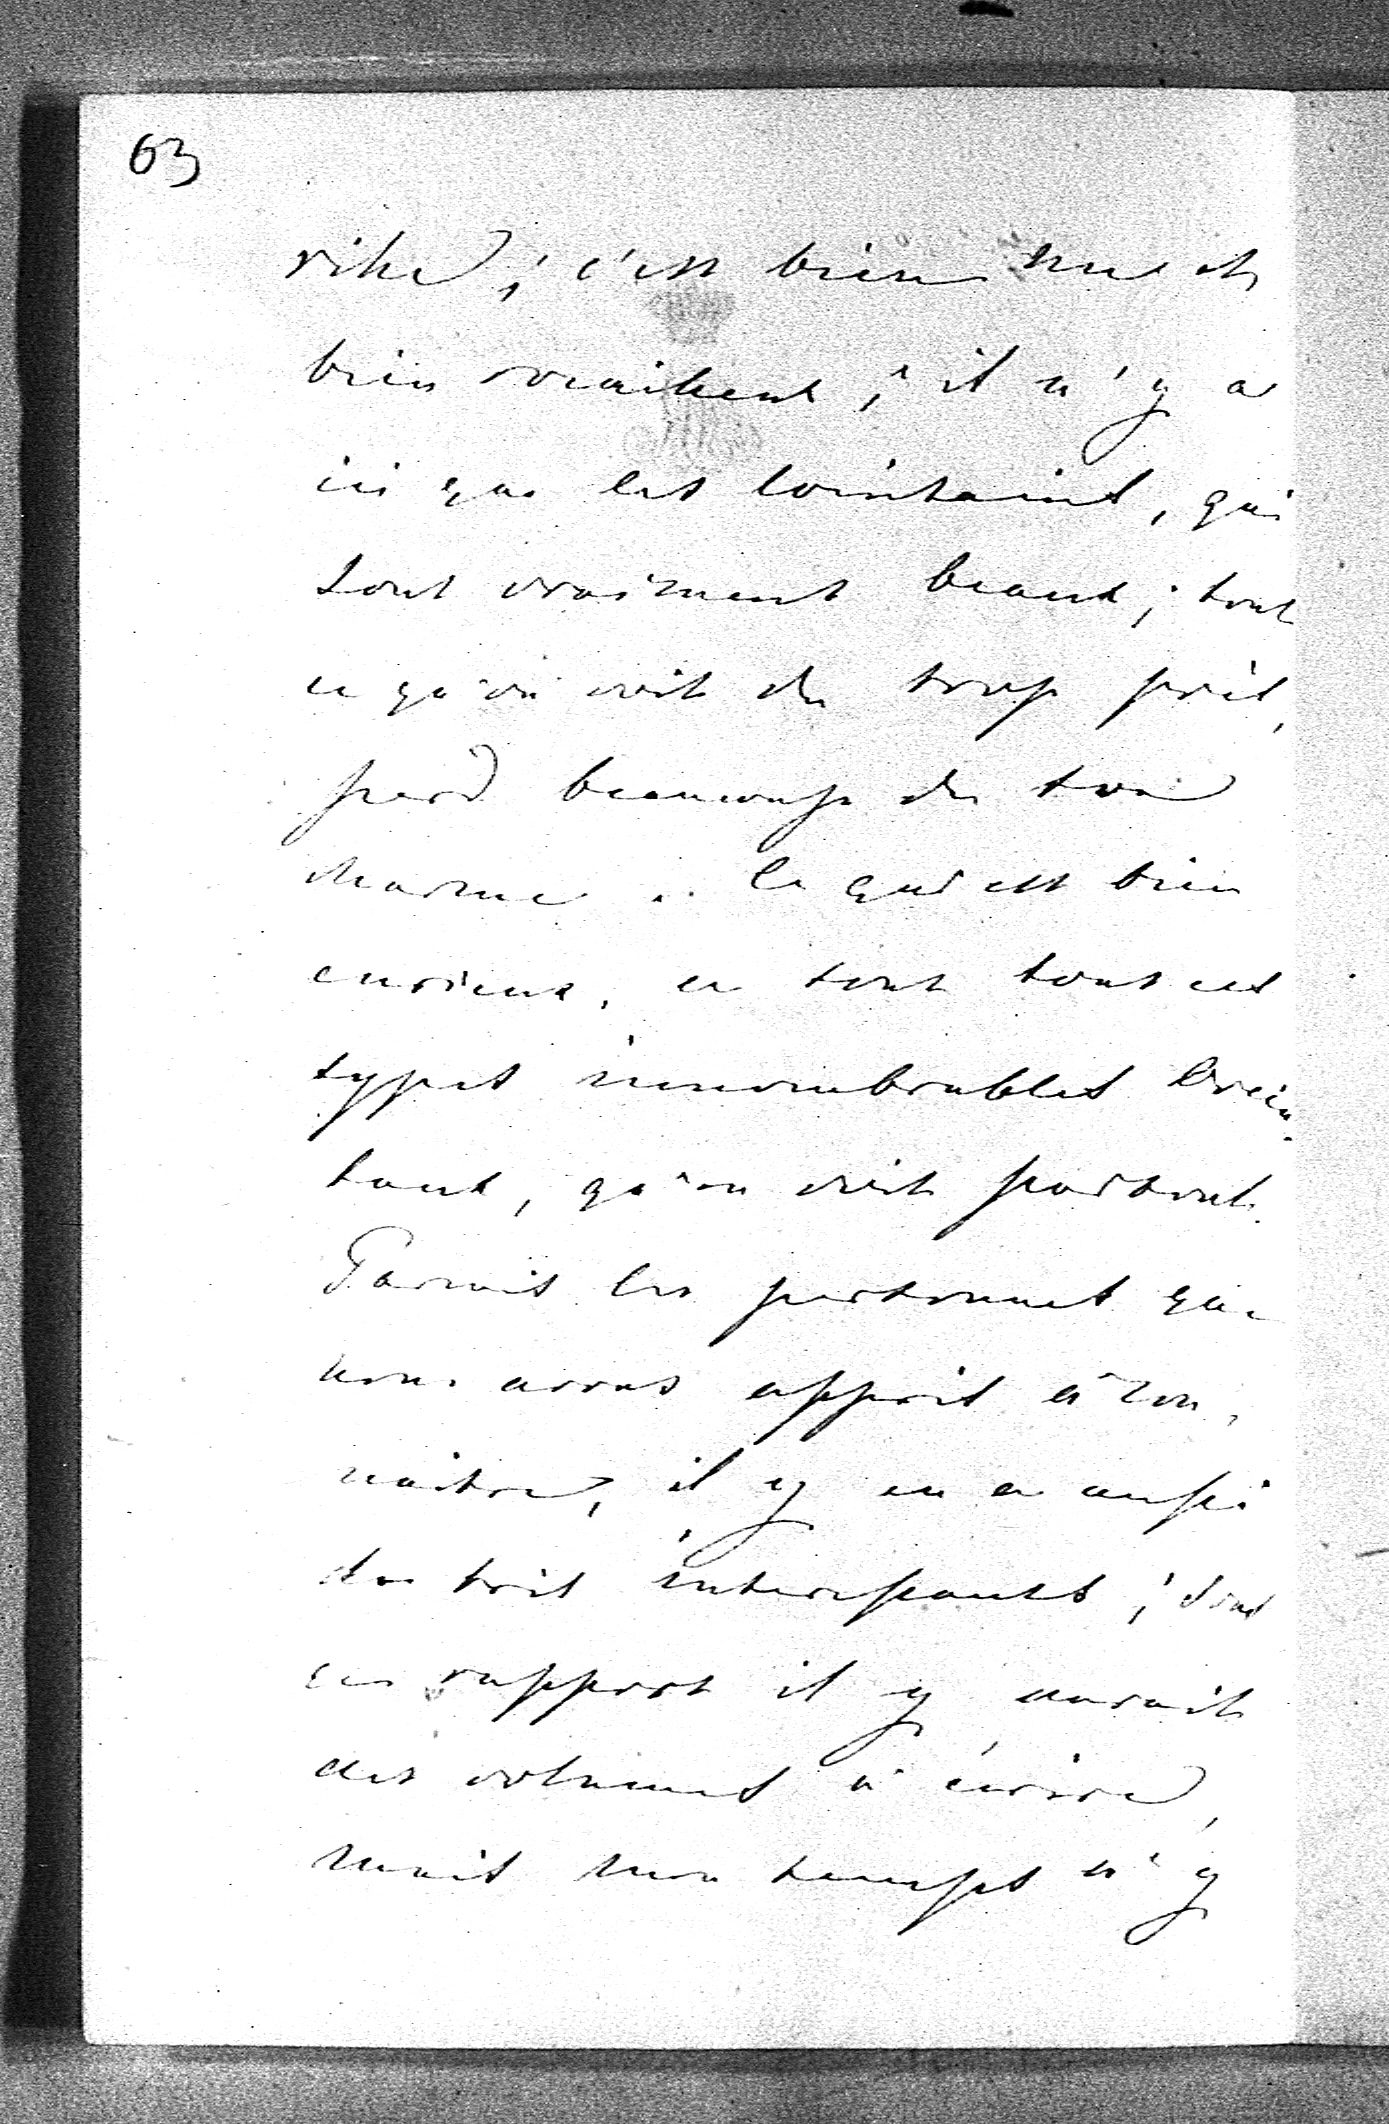 63
rite; c'est bien nu et
bien rouaillent; il n'y a
ici que les lointains, qui
sont vraiment beaux; tout
ce qu'on voit de trop près,
perd beaucoup de son
charme. Ce qui est bien
curieux, ce sont tous ces
types innombrables Orien-
taux, qu'on voit partout.
Parmis les personnes que
nous avons appris à con-
naitre, il y en a aussi
de très intéressants; sous
ce rapport il y aurait
des volumes à écrire,
mais mon temps n'y